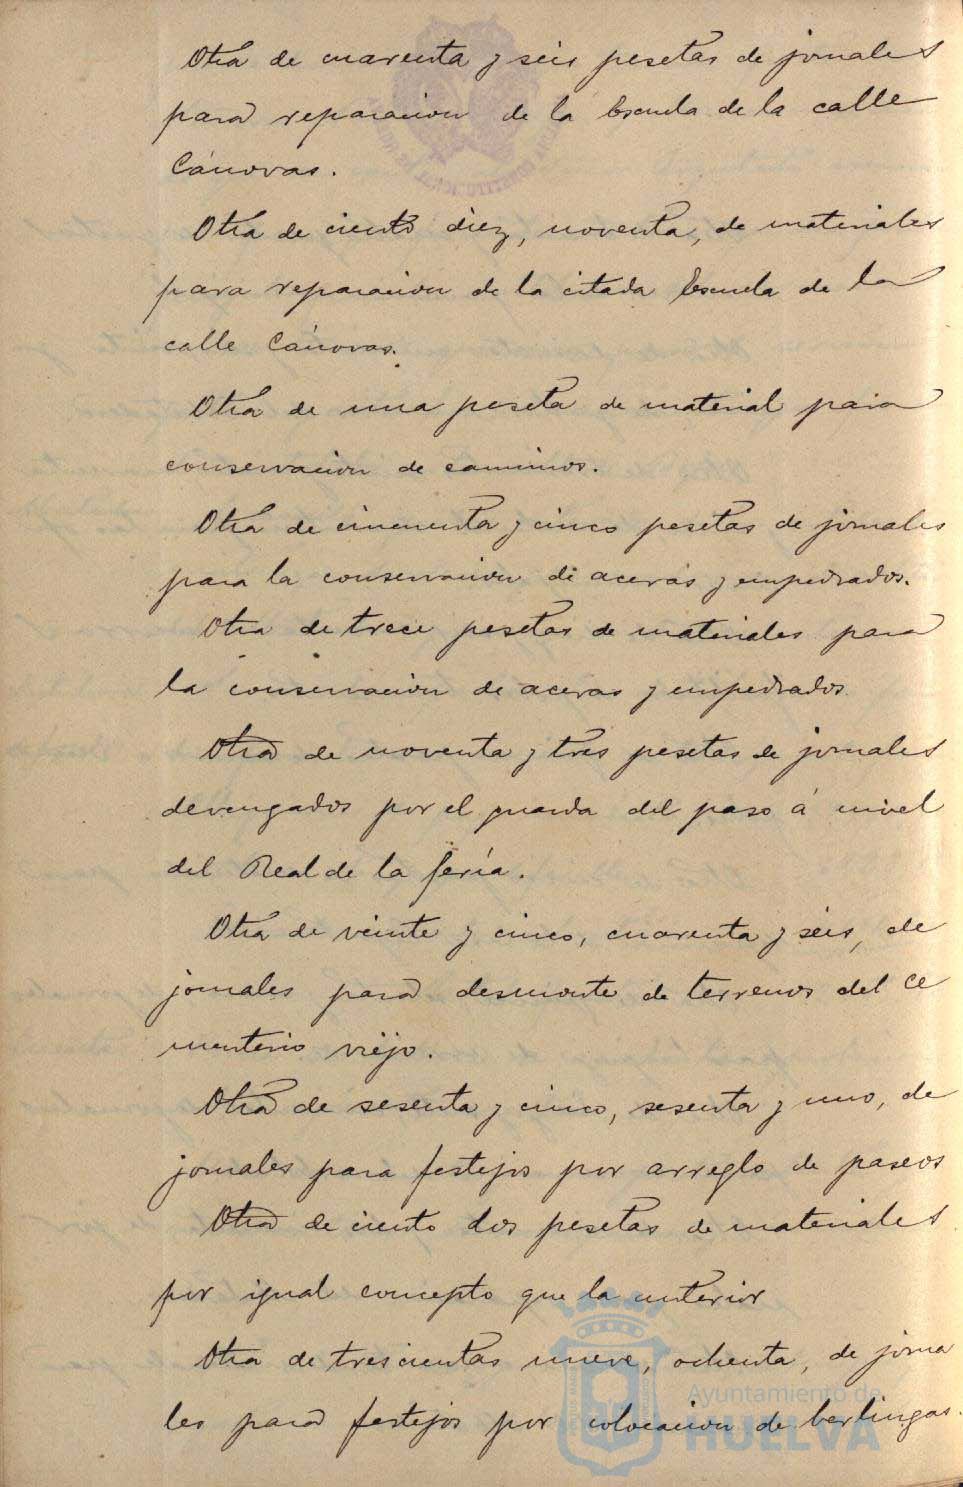 Otra de cuarenta y seis pesetas de jornales
para reparacion de la Escuela de la calle
Cánovas.
Otra de ciento diez, noventa, de materiales
para reparacion de la citada Escuela de la
calle Cánovas.
Otra de una peseta de material para
conservacion de caminos.
Otra de cincuenta y cinco pesetas de jornales
para la conservacion de aceras y empedrados.
Otra de trece pesetas de materiales para
la conservacion de aceras y empedrados.
Otra de noventa y tres pesetas de jornales
devengados por el guarda del paso á nivel
del Real de la feria.
Otra de veinte y cinco, cuarenta y seis, de
jornales para desmonte de terrenos del ce
menterio viejo.
Otra de sesenta y cinco, sesenta y uno, de
jornales para festejos por arreglo de paseos
Otra de ciento dos pesetas de materiales
por igual concepto que la anterior
Otra de trescientas nueve, ochenta, de jorna
les para festejos por colocacion de berlingas.
Ayuntamiento de
HUELVA